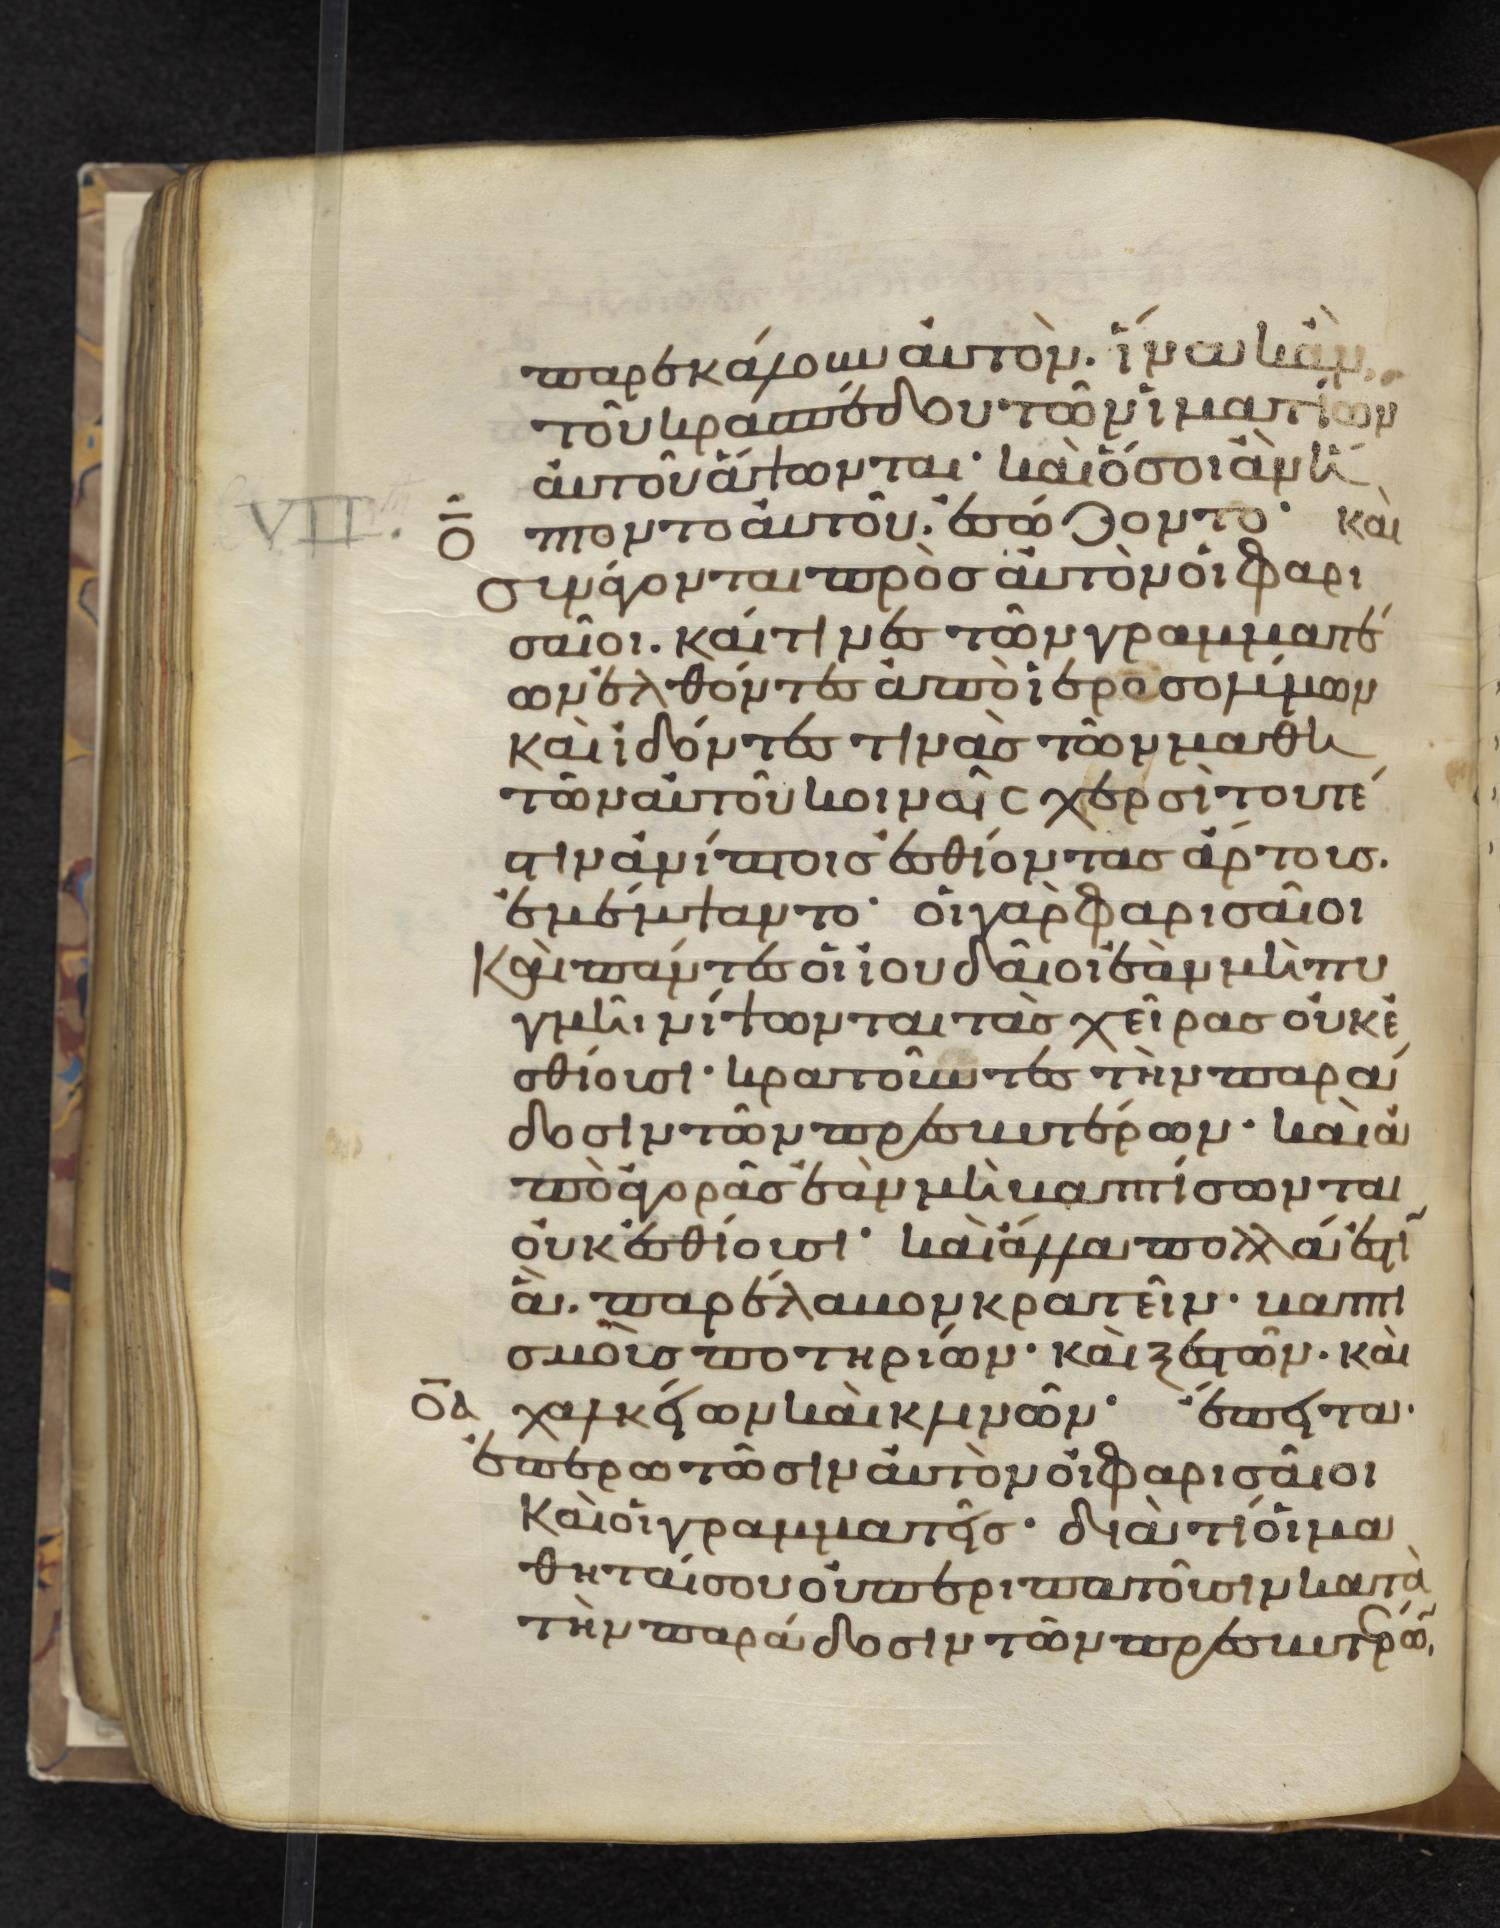 παρεκάλουν ἀυτὸν. ἵνα κἂν
τοῦ κρασπέδου τῶν ἱματίων
ἀυτοῦ ἅψωνται· καὶ ὅσοι ἂν ἥ
VII. ο̄ πτοντο ἀυτοῦ. ἐσώζοντο· καὶ
συνάγονται πρὸσ ἀυτὸν ὁι φαρι
σαῖοι. καί τινες τῶν γραμματέ
ων ἐλθόντες ἀπὸ ἱεροσολύμων
καὶ ἰδόντές τινὰσ τῶν μαθη
τῶν ἀυτοῦ κοιναῖς χερσὶ τουτέ
στιν ἀνίπτοισ ἐσθίοντασ ἄρτουσ.
ἐμέμψαντο· ὁι γὰρ φαρισαῖοι
καὶ πάντες ὁι ἰουδαῖοι ἐὰν μὴ πυ
γμῆ νίψωνται τὰσ χεῖρασ ὀυκ ἐ
σθίουσι· κρατοῦντες τὴν παρά
δοσιν τῶν πρεσβυτέρων· καὶ ἀ
πὸ ἀγορᾶσ ἐὰν μὴ βαπτίσωνται
ὀυκ ἐσθίουσι· καὶ ἄλλα πολλά ἐστῖ
ἃ. παρέλαβον κρατεῖν· βαπτι
σμοὺσ ποτηρίων· καὶ ξεστῶν· καὶ
ο̄α χαλκίων καὶ κλινῶν· ἔπειτα·
ἐπερωτῶσιν ἀυτὸν ὁι φαρισαῖοι
καὶ ὁι γραμματεῖσ· διὰ τί ὁι μα
θηταί σου ὀυ περιπατοῦσιν κατὰ
τὴν παράδοσιν τῶν πρεσβυτέρω̃.